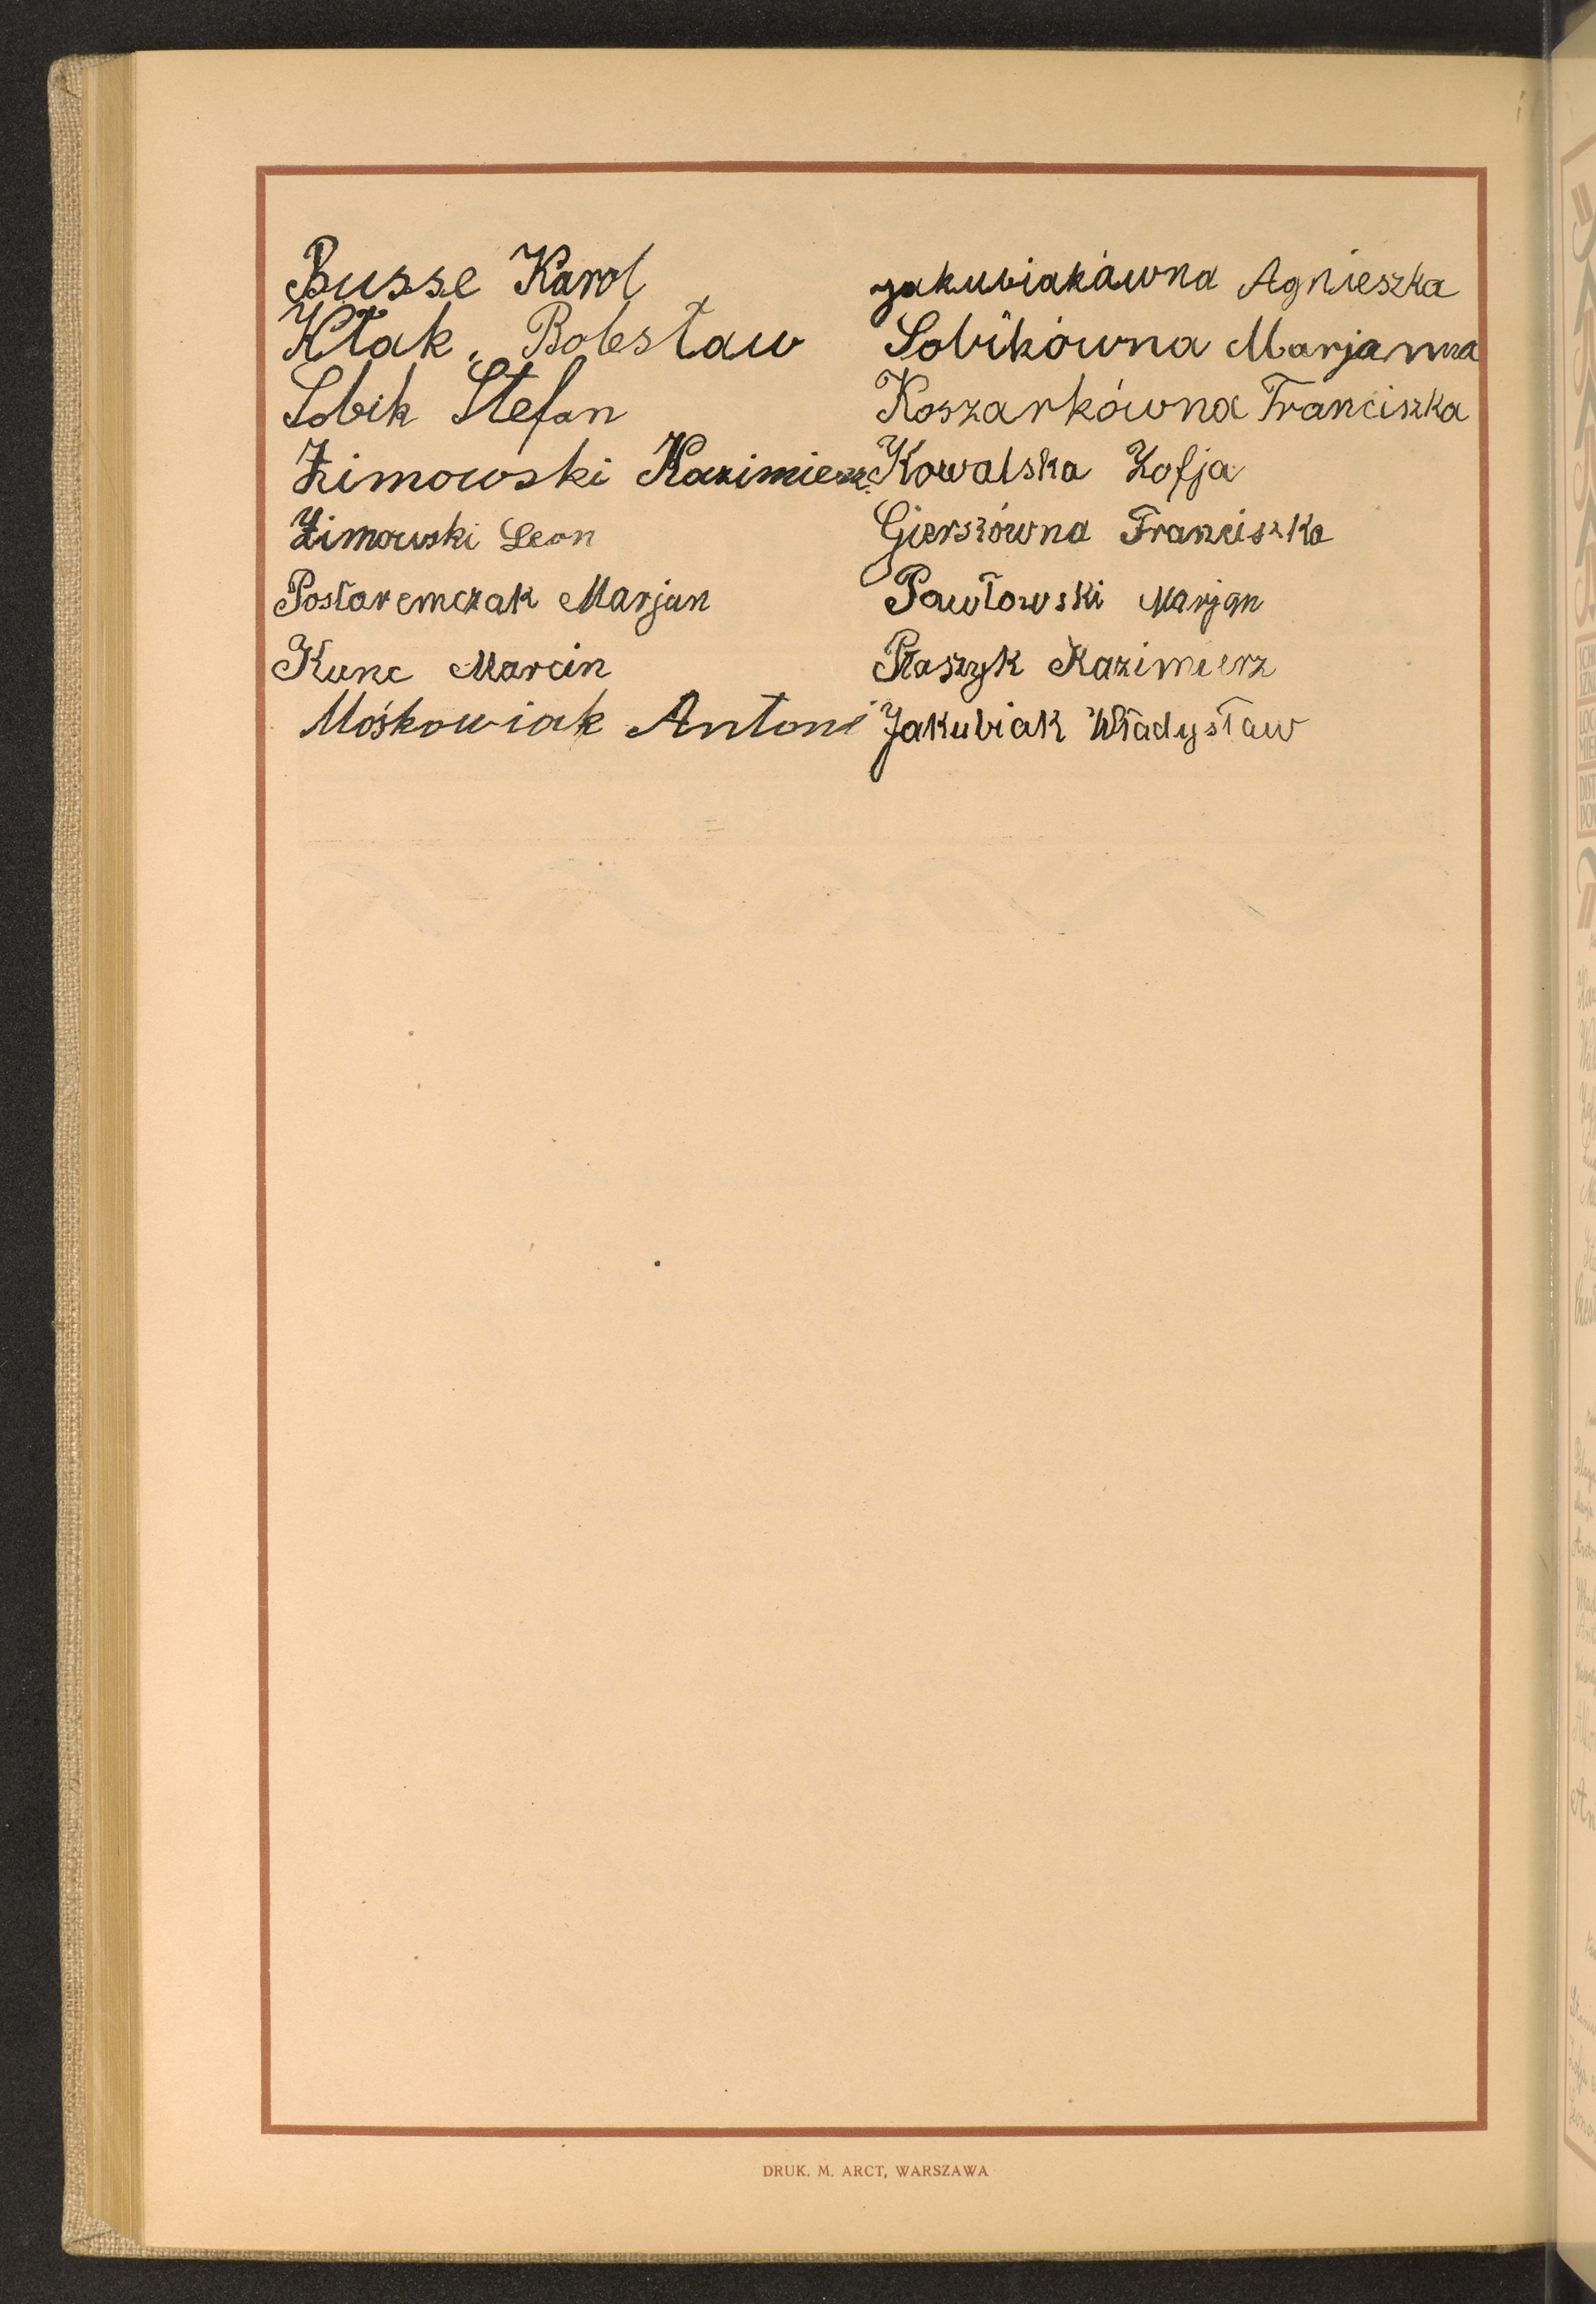 Busse Karol
Kłak. Bolesław
Sobik Stefan
Zimowski Kazimierz.
Zimowski Leon
Postaremczak Marjan
Kunc Marcin
Mośkowiak Antoni
Jakubiakówna Agnieszka
Sobikówna Marjanna
Koszarkówna Franciszka
Kowalska Zofja
Gierszówna Franciszka
Pawłowski Marjan
Ptaszyk Kazimierz
Jakubiak Władysław
DRUK. M. ARCT, WARSZAWA